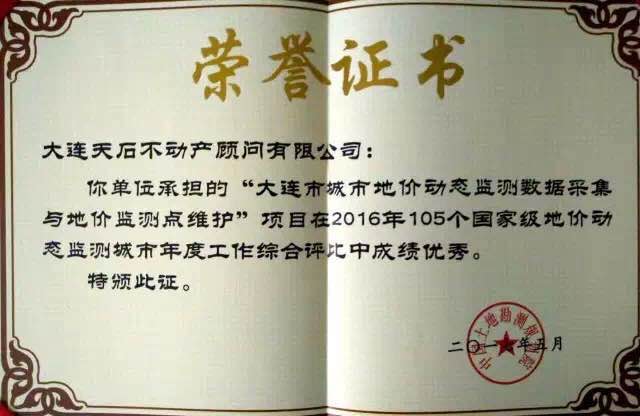 荣誉证书
大连天石不动产顾问有限公司：
你单位承担的“大连市城市地价动态监测数据采集
与地价监测点维护”项目在2016年105个国家级地价动
态监测城市年度工作综合评比中成绩优秀。
特颁此证。
中国土地勘测规划院
二〇一七年五月